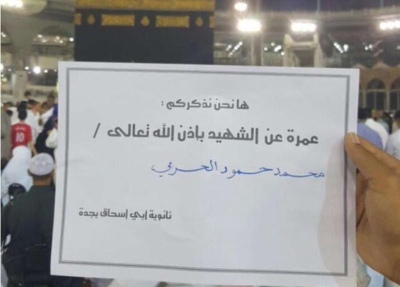 ها نحن نذكركم :
عمرة عن الشهيد بإذن الله تعالى /
محمد حمود الحربي
ثانوية إبي إسحاق بجدة
10